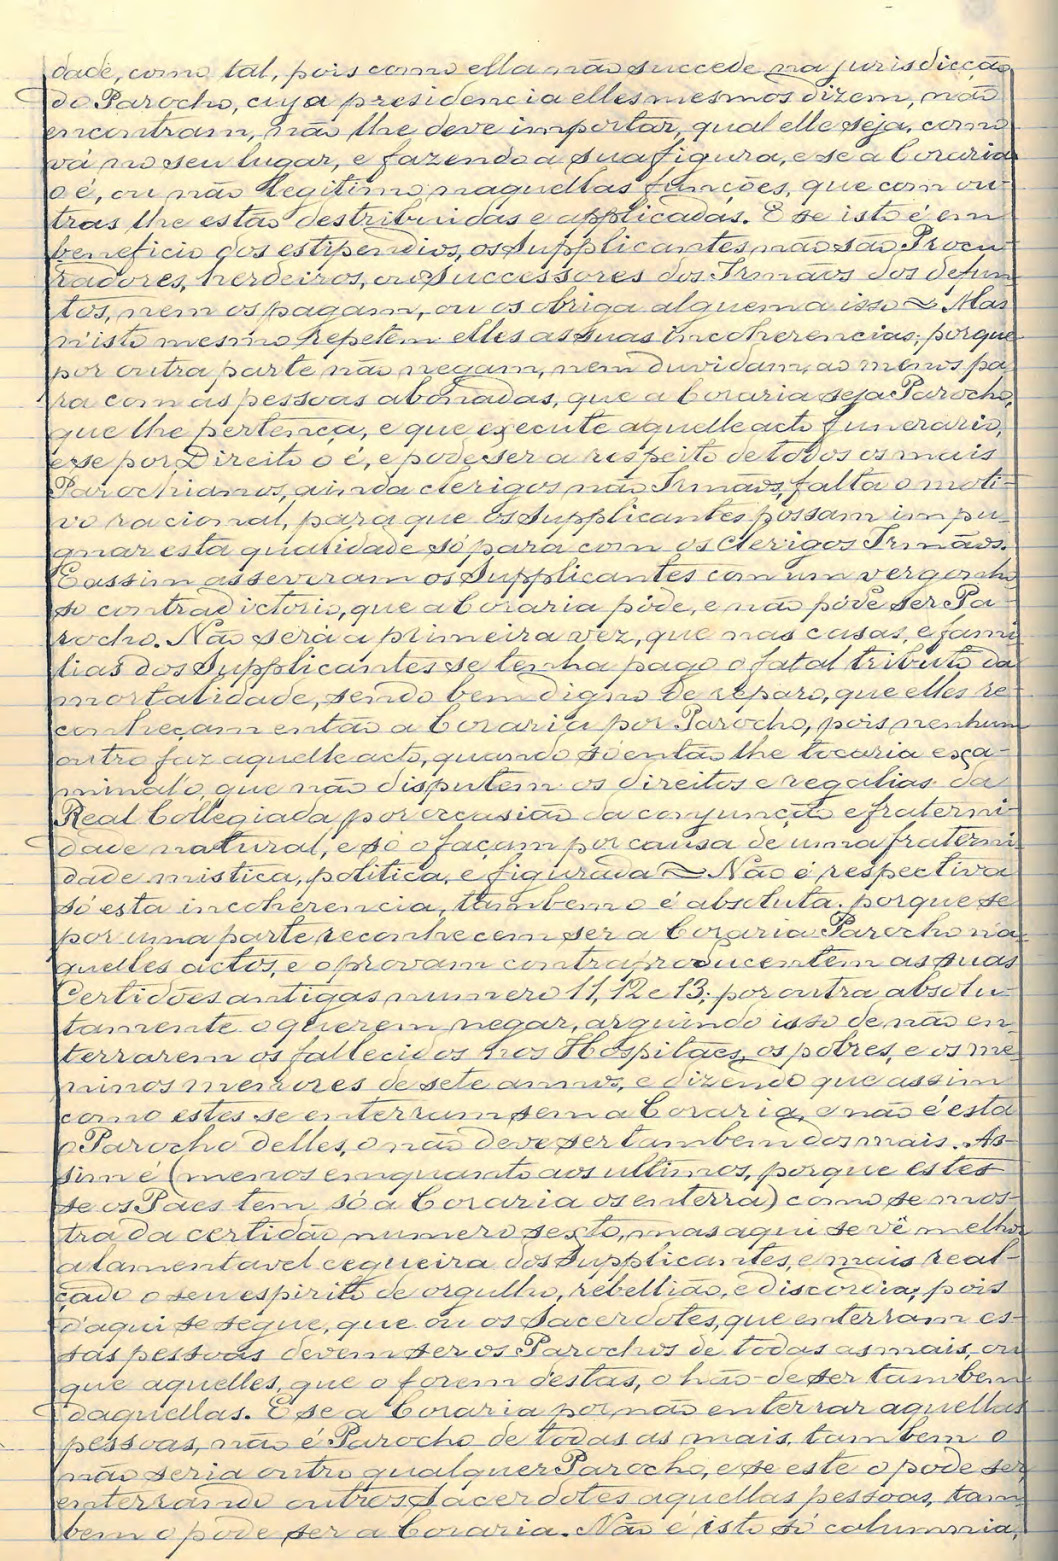 dade, como tal, pois como ella não succede na jurisdicção
do Parocho, cuja presidencia elles mesmos dizem, não
encontram, não lhe deve importar, qual elle seja, como
vá no seu lugar, e fazendo a sua figura, e se a Coraria
o é, ou não legitimo naquellas funções, que com ou-
tras lhe estão destribuidas e applicadas. E se isto é em
beneficio dos estipendios, os Supplicantes, não são Procu-
radores, herdeiros, ou Successores dos Irmãos dos defun-
tos, nem os pagam, ou os obriga alguem a isso ~ Mas
n'isto mesmo repetem elles as suas incoherencias; porque
por outra parte não negam, nem duvidam, ao menos pa-
ra com as pessoas abonadas, que a Coraria seja Parocho,
que lhe pertença, e que execute aquelle acto funerario,
e se por Direito o é, e pode ser a respeito de todos os mais
Parochianos, ainda clerigos não Irmãos, falta o moti-
vo racional, para que os Supplicantes possam impu-
gnar esta qualidade só para com os Clerigos Irmãos.
E assim asseveram os Supplicantes com um vergonho
so contradictorio, que a Coraria póde, e não póde ser Pa-
rocho. Não será a primeira vez, que nas casas, e fami
lias dos Supplicantes se tenha pago o fatal tributo da
mortalidade, sendo bem digno de reparo, que elles re-
conheçam então a Coraria por Parocho, pois nenhum
outro faz aquelle acto, quando só então lhe tocaria exa-
minal'o, que não disputem os direitos e regalias da
Real Collegiada por occasião da conjuncção e fraterni-
dade natural, e só o façam por causa de uma fraterni
dade mistica, politica, e figurada ~ Não é respectiva
só esta incoherencia, tambem o é absoluta; porque se
por uma parte reconhecem ser a Coraria Parocho n'a-
quelles actos, e o provam contraproducentem as suas
Certidões antigas numero 11, 12 e 13; por outra absolu-
tamente o querem negar, arguindo isso de não en-
terrarem os fallecidos nos Hospitães, os pobres, e os me-
ninos menores de sete annos, e dizendo que assim
como estes se enterram sem a Coraria, e não é esta
o Parocho delles, o não deve ser tambem dos mais. As-
sim é (menos emquanto aos ultimos, porque estes
se os Paes tem só a Coraria os enterra) como se mos-
tra da certidão numero sexto, mas aqui se vê melhor
a lamentavel cegueira dos Supplicantes, e mais real-
çado o seu espirito de orgulho, rebellião, e discordia; pois
d'aqui se segue, que ou os Sacerdotes, que enterram es-
sas pessoas devem ser os Parochos de todas as mais, ou
que aquelles, que o forem destas, o hão-de ser tambem
daquellas. E se a Coraria por não enterrar aquellas
pessoas, não é Parocho de todas as mais, tambem o
não seria outro qualquer Parocho, e se este o pode ser
enterrando outros Sacerdotes aquellas pessoas, tam-
bem o pode ser a Coraria. Não é isto só calumnia,